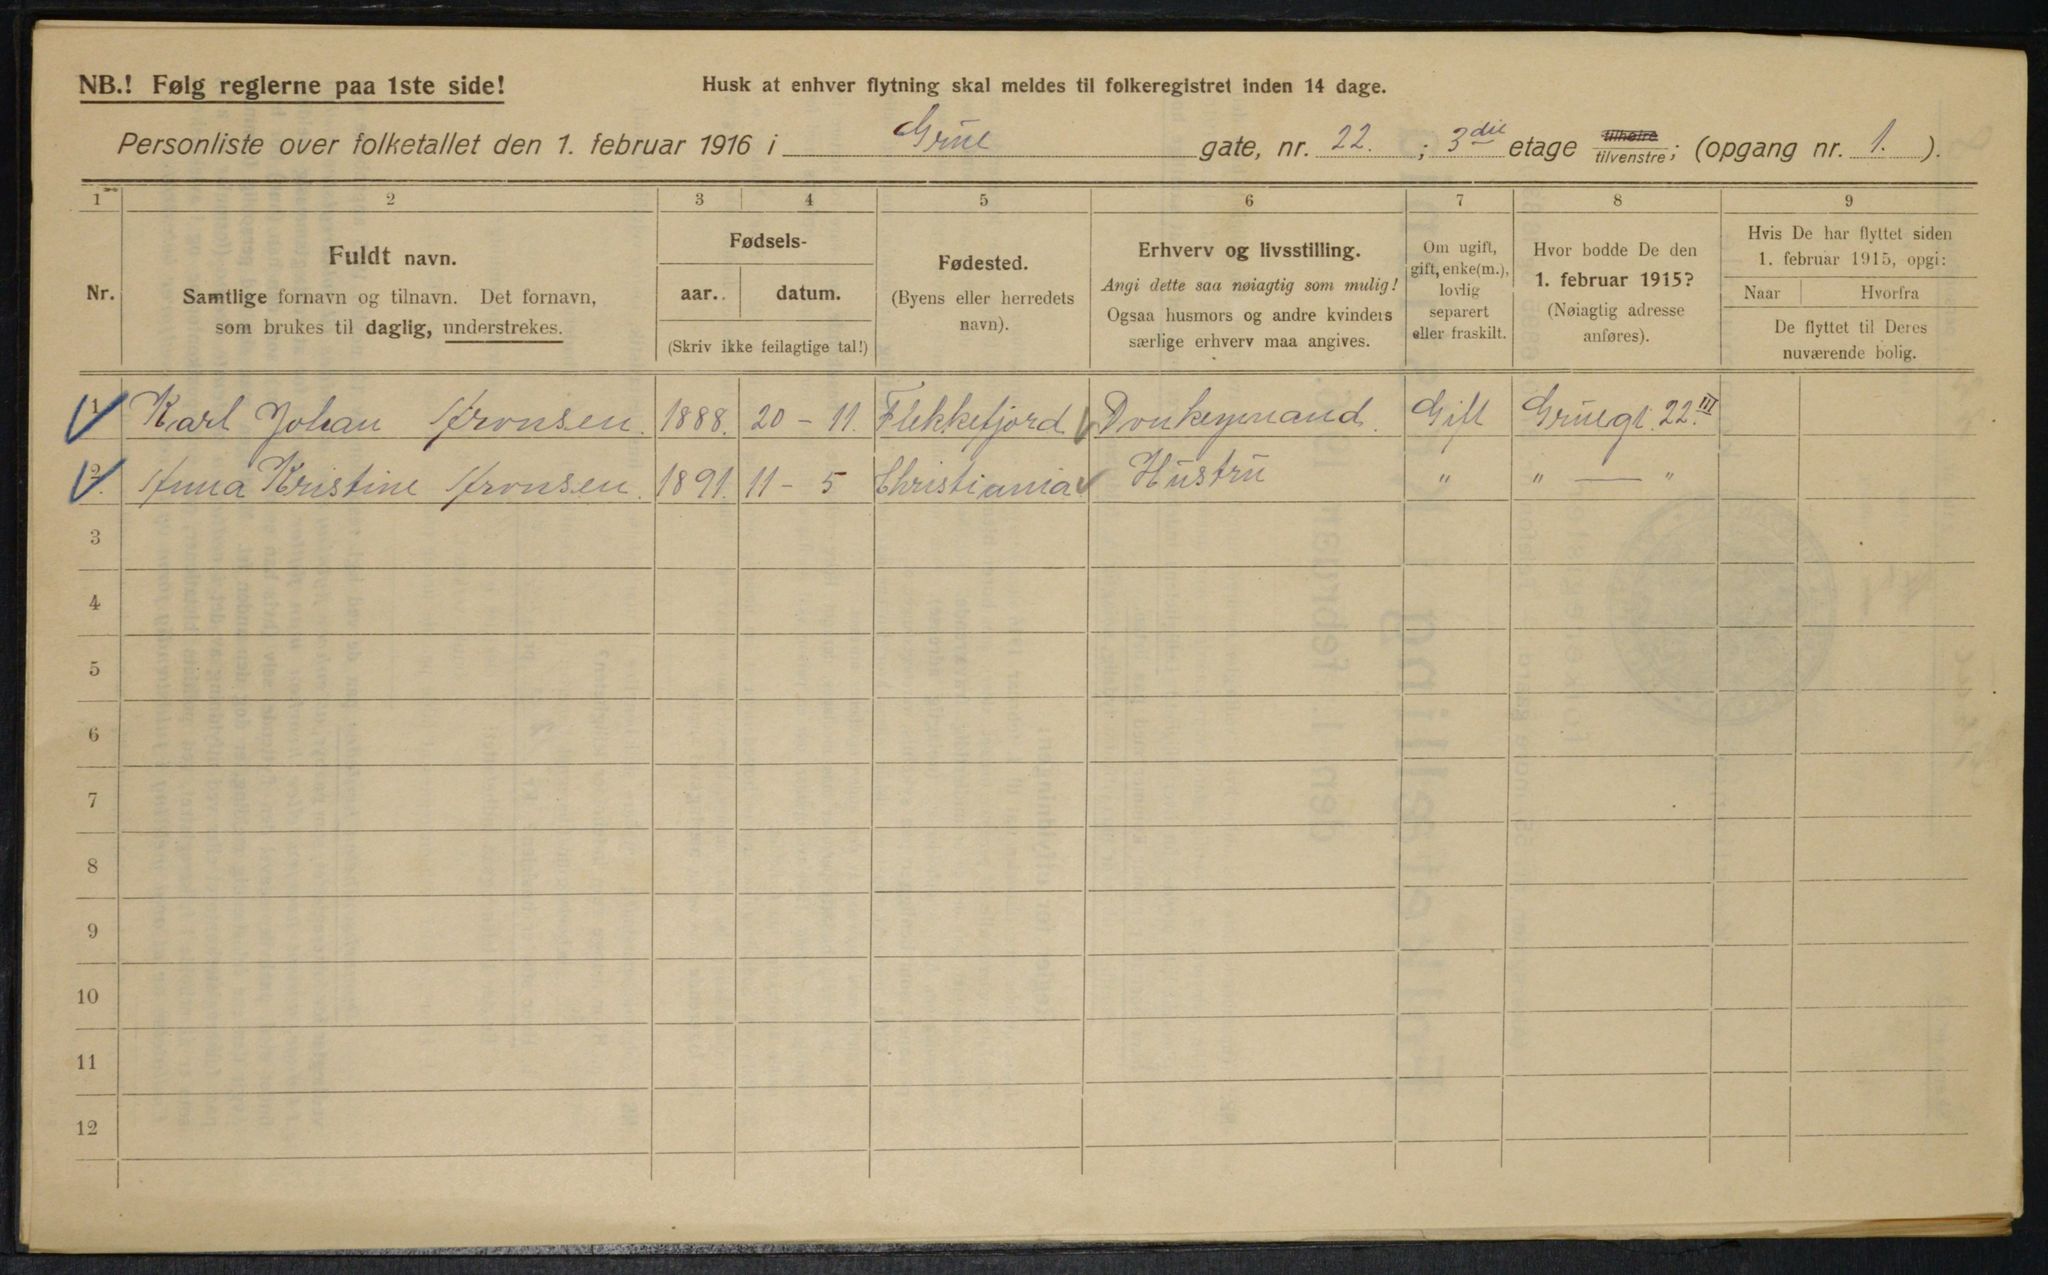 NB.! Følg reglerne paa 1ste side!
Husk at enhver flytning skal meldes til folkeregistret inden 14 dage.
Personliste over folketallet den 1. februar 1916 i Grüe gate, nr. 22. ; 3die etage tilhøire tilvenstre; (opgang nr. 1. ).
1 2 3 4 5 6 7 8 9
Nr.
Fuldt navn.
Samtlige fornavn og tilnavn. Det fornavn,
som brukes til daglig, understrekes.
Fødsels-
aar. datum.
(Skriv ikke feilagtige tal!)
Fødested.
(Byens eller herredets
navn).
Erhverv og livsstilling.
Angi dette saa nøiagtig som mulig!
Ogsaa husmors og andre kvinders
særlige erhverv maa angives.
Om ugift,
gift, enke(m.),
lovlig
separert
eller fraskilt.
Hvor bodde De den
1. februar 1915?
(Nøiagtig adresse
anføres).
Hvis De har flyttet siden
1. februar 1915, opgi:
Naar Hvorfra
De flyttet til Deres
nuværende bolig.
1 Karl Johan Aronsen. 1888. 20 – 11. Flekkefjord Donkeymand. Gift Grüegt. 22.III
2. Anna Kristine Aronsen. 1891. 11 – 5 Christiania Hüstrü " " — "
3
4
5
6
7
8
9
10
11
12